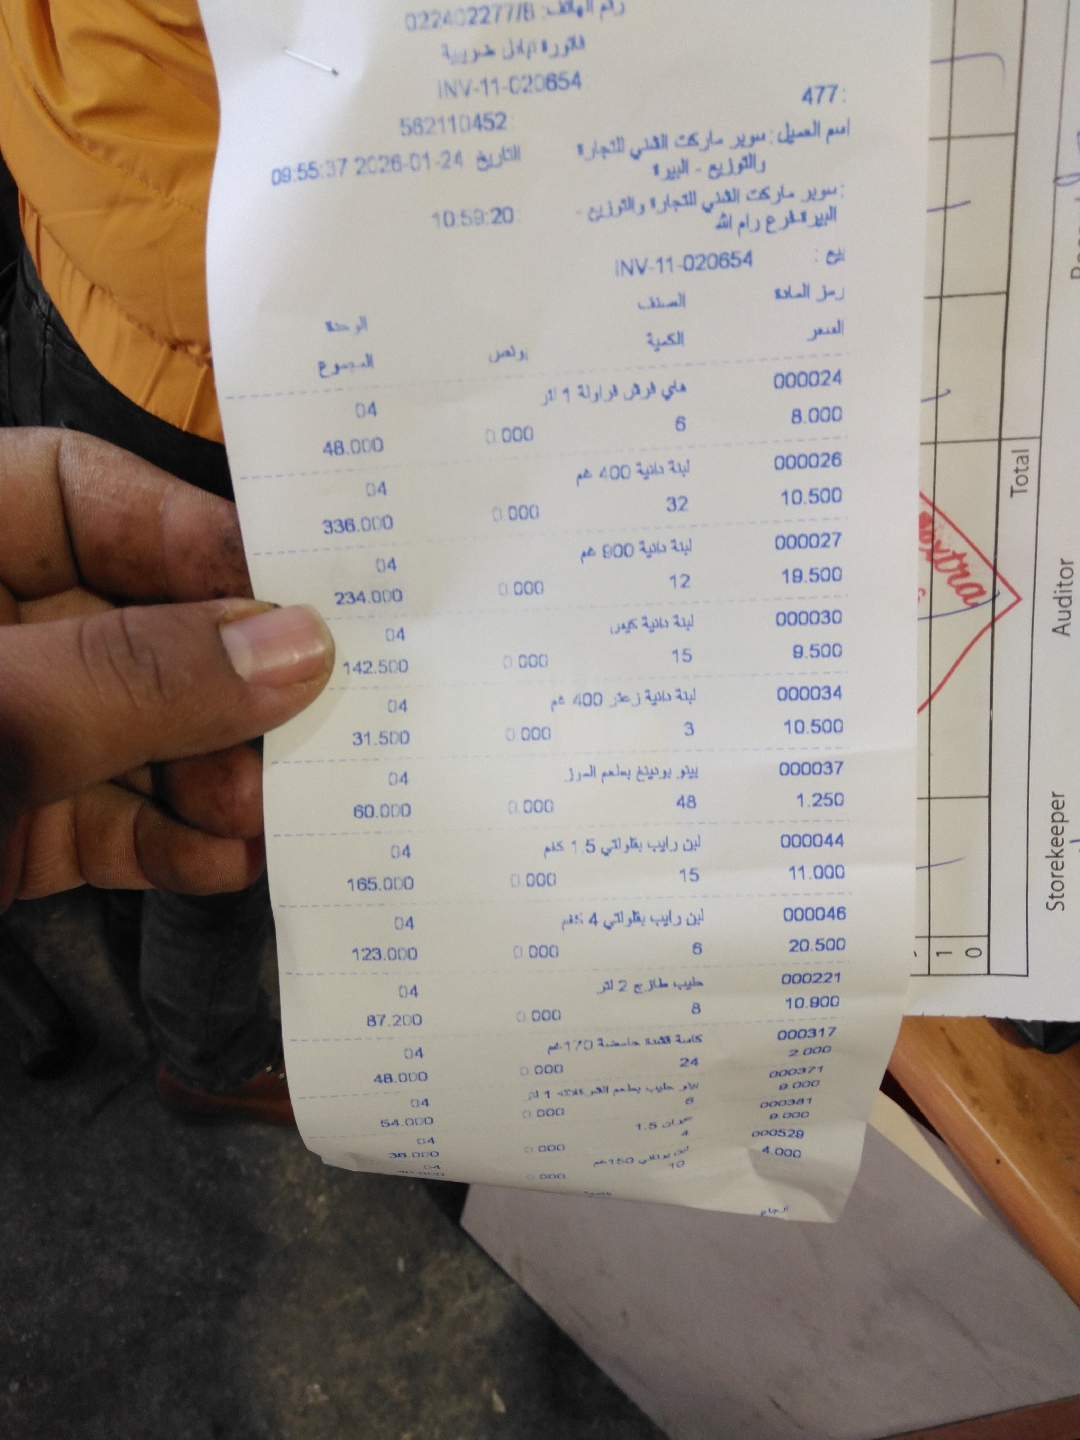 رقم الهاتف: 022402277/8
فاتورة تبادل ضريبية
INV-11-020654
477:
562110452:
اسم العميل: سوبر ماركت الشني للتجارة والتوزيع - البيرة
التاريخ 2026-01-24 09:55:37
: سوبر ماركت الشني للتجارة والتوزيع - البيرة فرع رام الله
10:59:20:
بيع: INV-11-020654
رمز المادة الصنف الوحدة
السعر الكمية بونص المجموع
000024 هاي فرش فراولة 1 لتر 04
8.000 6 0.000 48.000
000026 لبنة دانية 400 غم 04
10.500 32 0.000 336.000
000027 لبنة دانية 800 غم 04
19.500 12 0.000 234.000
000030 لبنة دانية كيس 04
9.500 15 0.000 142.500
000034 لبنة دانية زعتر 400 غم 04
10.500 3 0.000 31.500
000037 بينو بودينغ بطعم الموز 04
1.250 48 0.000 60.000
000044 لبن رايب بقلولتي 1.5 كغم 04
11.000 15 0.000 165.000
000046 لبن رايب بقلولتي 4 كغم 04
20.500 6 0.000 123.000
000221 حليب طازج 2 لتر 04
10.900 8 0.000 87.200
000317 كاسة القشدة حامضة 170غم 04
2.000 24 0.000 48.000
000371 بينو حليب بطعم الشوكلاته 1 لتر 04
9.000 6 0.000 54.000
000381 1.5 04
9.000 4 0.000 36.000
000529 لبن يوناني 150غم 04
4.000 10 0.000
Total
extra
Auditor
Storekeeper
1
0